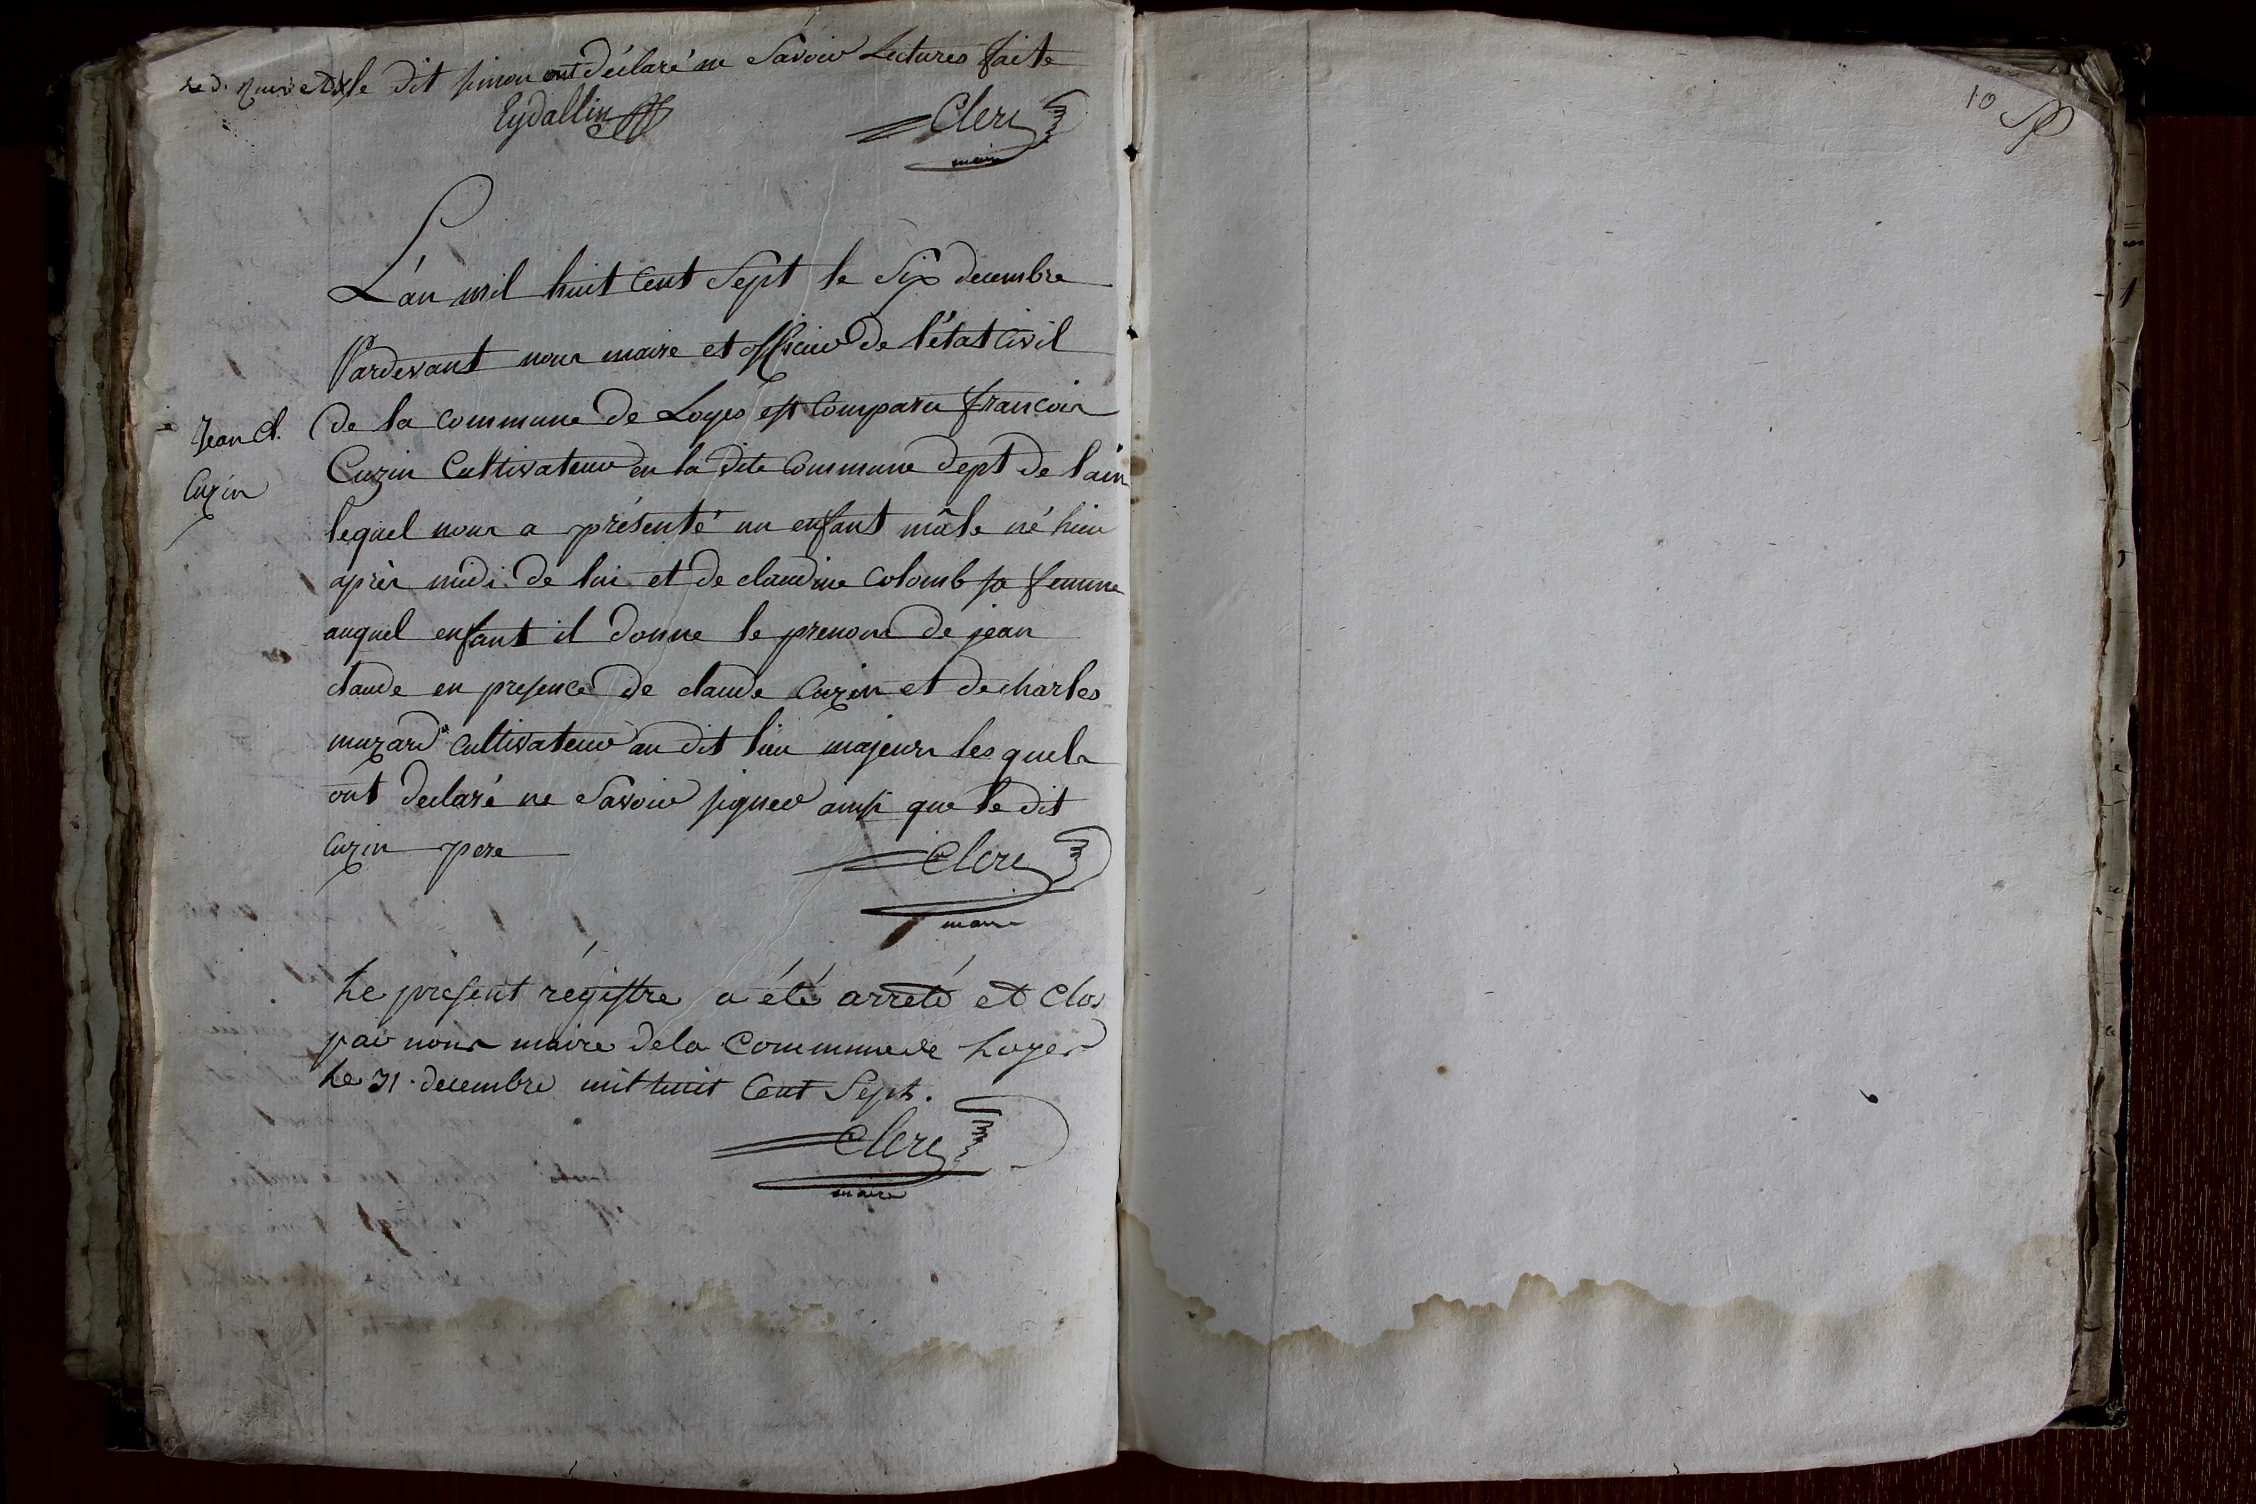 le dit simon ont déclaré ne Savoir Lectures faite
Eydallin
Clerc
maire
L'an mil huit Cent Sept le Six decembre
Pardevant nous maire et officier de l'état Civil
Jean Cl.
Cuzin
de la commune de Loyes est Comparu françois
Cuzin Cultivateur en la dite Commune dept de l'ain
lequel nous a présenté un enfant mâle né hier
après midi de lui et de claudine Colomb sa femme
auquel enfant il donne le prenom de jean
claude en presence de claude Cuzin et de charles
muzard cultivateur au dit lieu majeurs lesquels
ont declaré ne Savoir signer ainsi que le dit
Cuzin pere
Clerc
maire
Le present régistre a été arreté et Clos
par nous maire de la Commune de Loyes
Le 31. decembre mil huit Cent Sept.
Clerc
maire
10